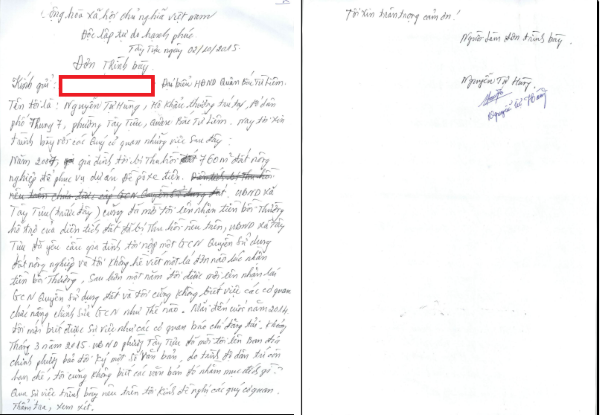 Cộng hòa xã hội chủ nghĩa việt nam
Độc lập tự do hạnh phúc
Tây Tựu ngày 02/10/2015
Đơn Trình bày
Kính gửi: Đại biểu HĐND Quận Bắc Từ Liêm.
Tên tôi là: Nguyễn Tự Hùng, Hộ khẩu thường trú tại, tổ dân
phố Thượng 7, phường Tây Tựu, Quận Bắc Từ Liêm. Nay tôi xin
trình bày với các Quý cơ quan những việc sau đây:
Năm 2007, gia đình tôi bị thu hồi 760m² đất nông
nghiệp để phục vụ dự án
UBND xã
Tây Tựu (trước đây) cũng đã mời tôi lên nhận tiền bồi thường
hỗ trợ của diện tích đất đã bị thu hồi nêu trên, UBND xã Tây
Tựu đã yêu cầu gia đình tôi nộp một GCN Quyền sử dụng
đất nông nghiệp và tôi không hề viết một lá đơn nào lúc nhận
tiền bồi thường, Sau hơn một năm tôi được mời lên nhận lại
GCN Quyền sử dụng đất và tôi cũng không biết việc các cơ quan
chức năng chỉnh sửa GCN như thế nào. Mãi đến cuối năm 2014
tôi mới biết được sự việc như các cơ quan báo chí đăng tải, khoảng
Tháng 3 năm 2015 UBND phường Tây Tựu đã mời tôi lên Ban địa
chính phường bảo tôi ký một số văn bản, do trình độ dân trí còn
hạn chế, tôi cũng không biết các văn bản đó nhằm mục đích gì.
Qua sự việc trình bày nêu trên tôi Kính đề nghị các quý cơ quan
Thẩm tra, xem xét.
Tôi xin trân trọng cảm ơn!
Người làm đơn trình bày
Nguyễn Tự Hùng